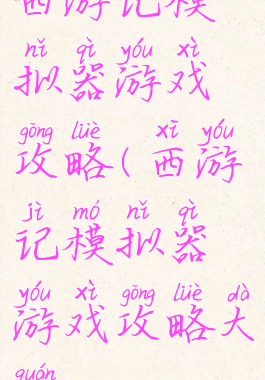 西游记模
nǐ qì yóu xì
拟器游戏
gōng lüè xī yóu
攻略(西游
jì mó nǐ qì
记模拟器
yóu xì gōng lüè dà
游戏攻略大
quán